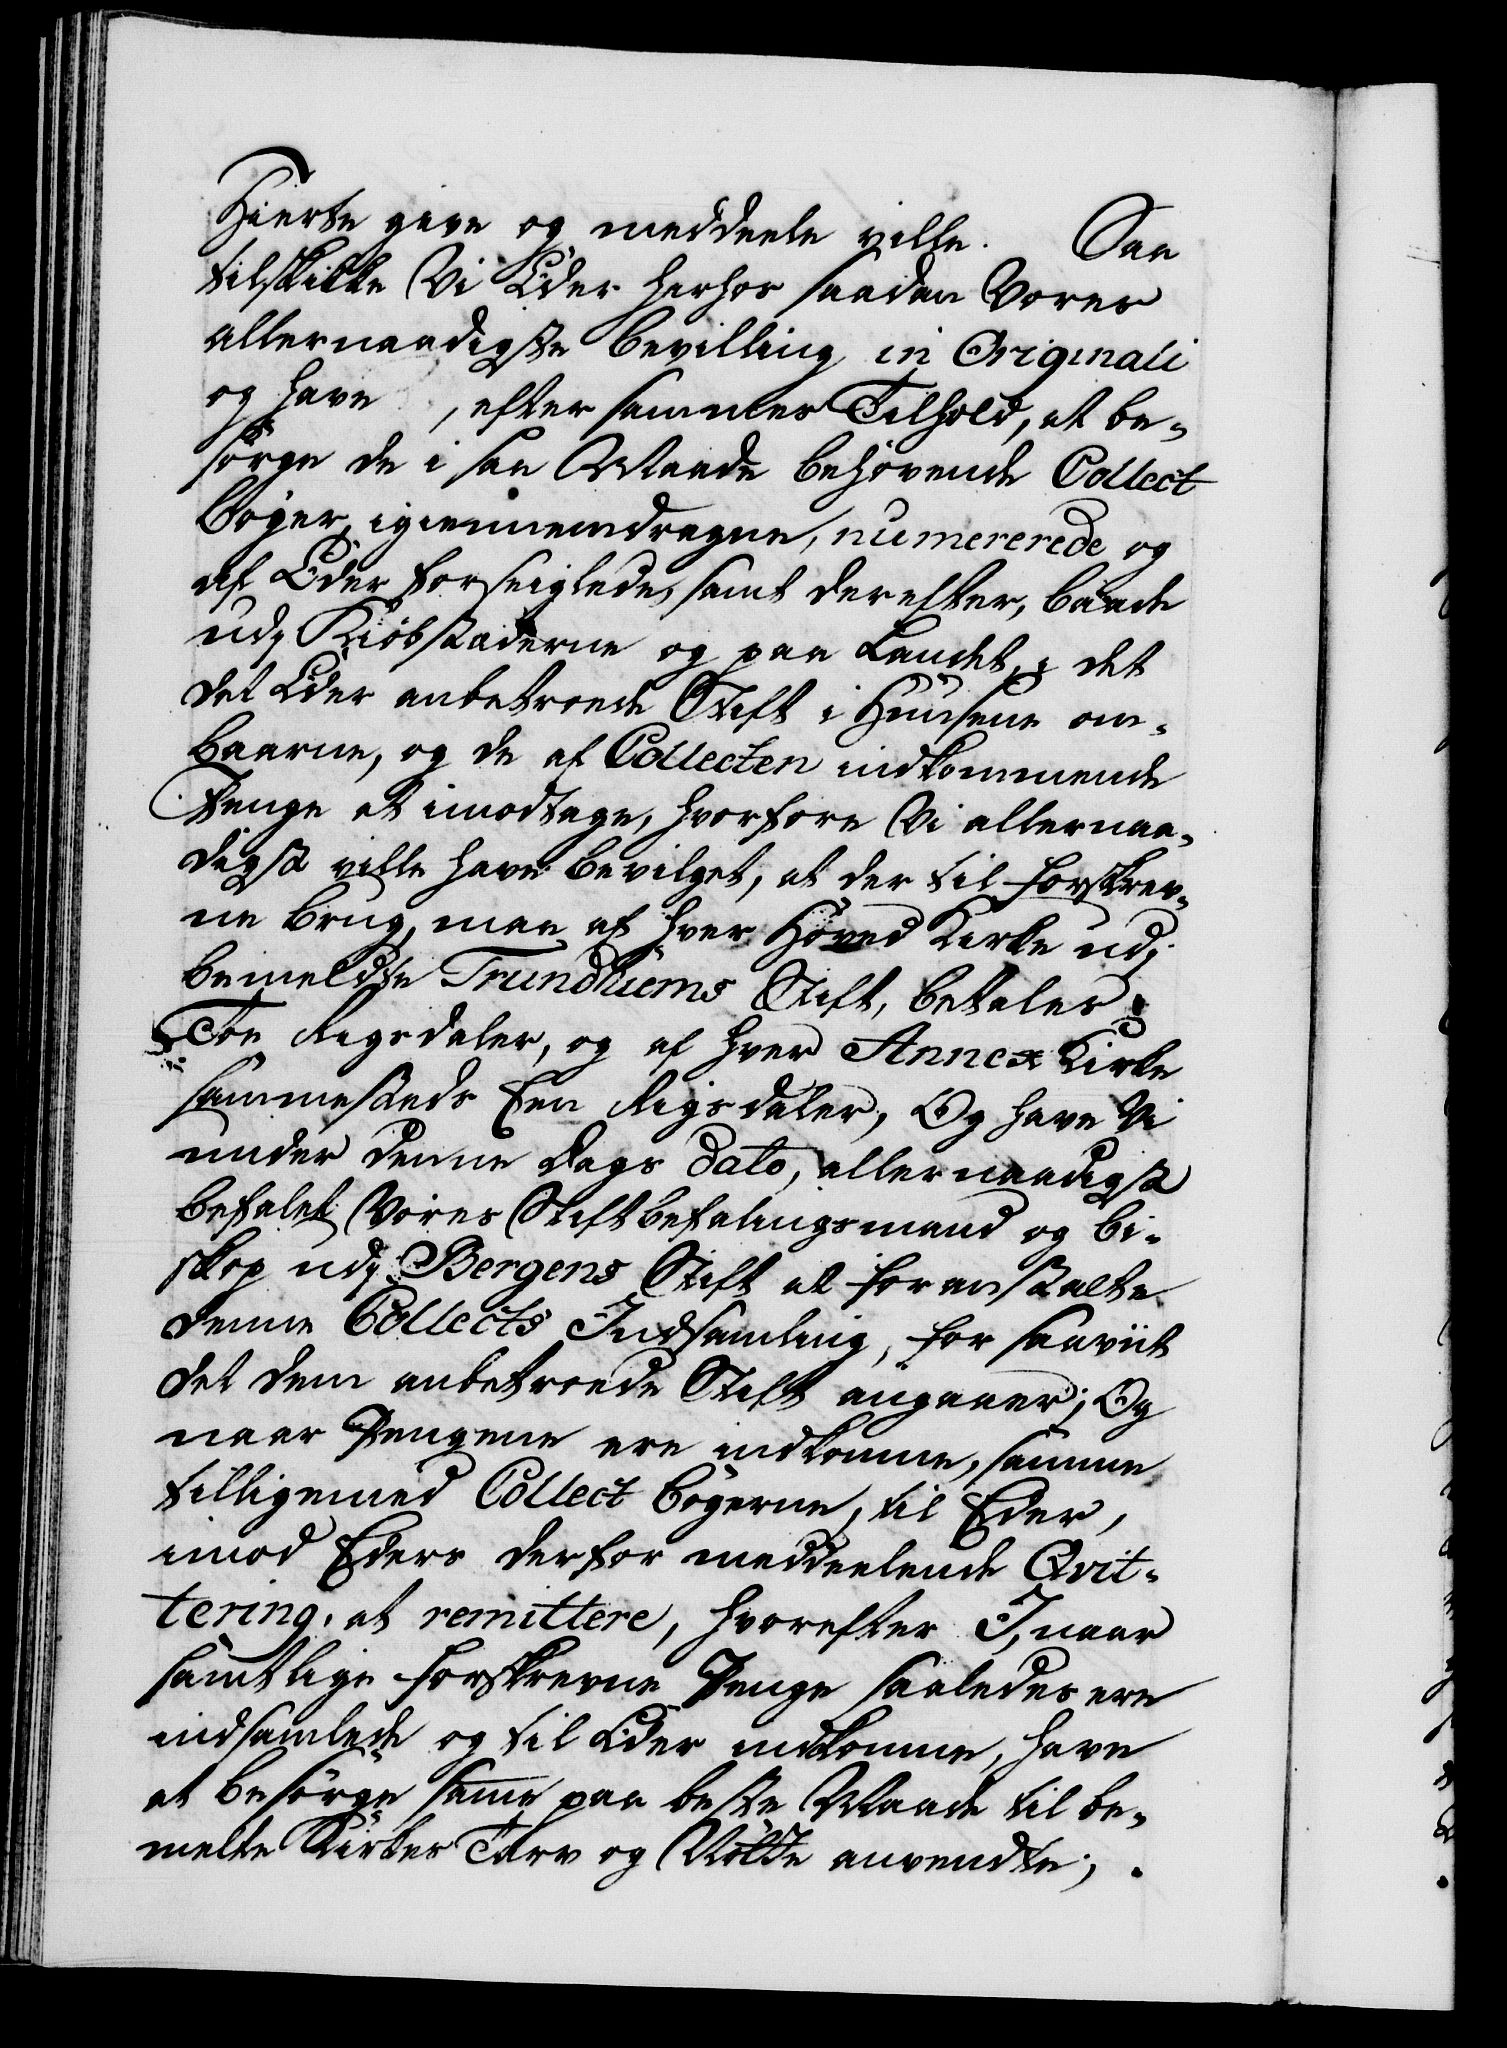 Hierte give og meddeele ville. Saa
tilskikke Vi Eder herhos saadan Vores
allernaadigste Bevilling in Originali
og have , efter sammes Tilhold, at be-
sørge de i saa Maade behøvende Collect
bøger, igiennemdragne, numererede og
af Eder forseiglede, samt derefter, baade
udj Kiøbstæderne og paa Landet, i det
det Eder anbetroede Stift i Huusene om-
baarne, og de af Collecten indkommende
Penge at imodtage, hvorfore Vi allernaa-
digst ville have bevilget, at der til forskrev-
ne brug, maa af hver Hoved Kirke udj
bemeldte Trundhiems Stift, betales
Toe Rigsdaler, og af hver Annex Kirke
sammesteds Een Rigsdaler, Og have Vi
under denne Dags Dato, allernaadigst
befalet Vores Stiftbefalingsmand og Bi-
skop udj Bergens Stift at foranstalte
denne Collects Indsamling, for saaviit
det dem anbetroede Stift angaaer; Og
naar Pengene ere indkomne, samme
tilligemed Collect bøgerne, til Eder,
imod Eders derfor meddeelende Qvit-
tering, at remittere, hvorefter I, naar
samtlige forskrevne Penge saaledes ere
indsamlede og til Eder indkomne, have
at besørge samme paa beste Maade til be-
melte Kirkes Tarv og Nøtte anvendte;